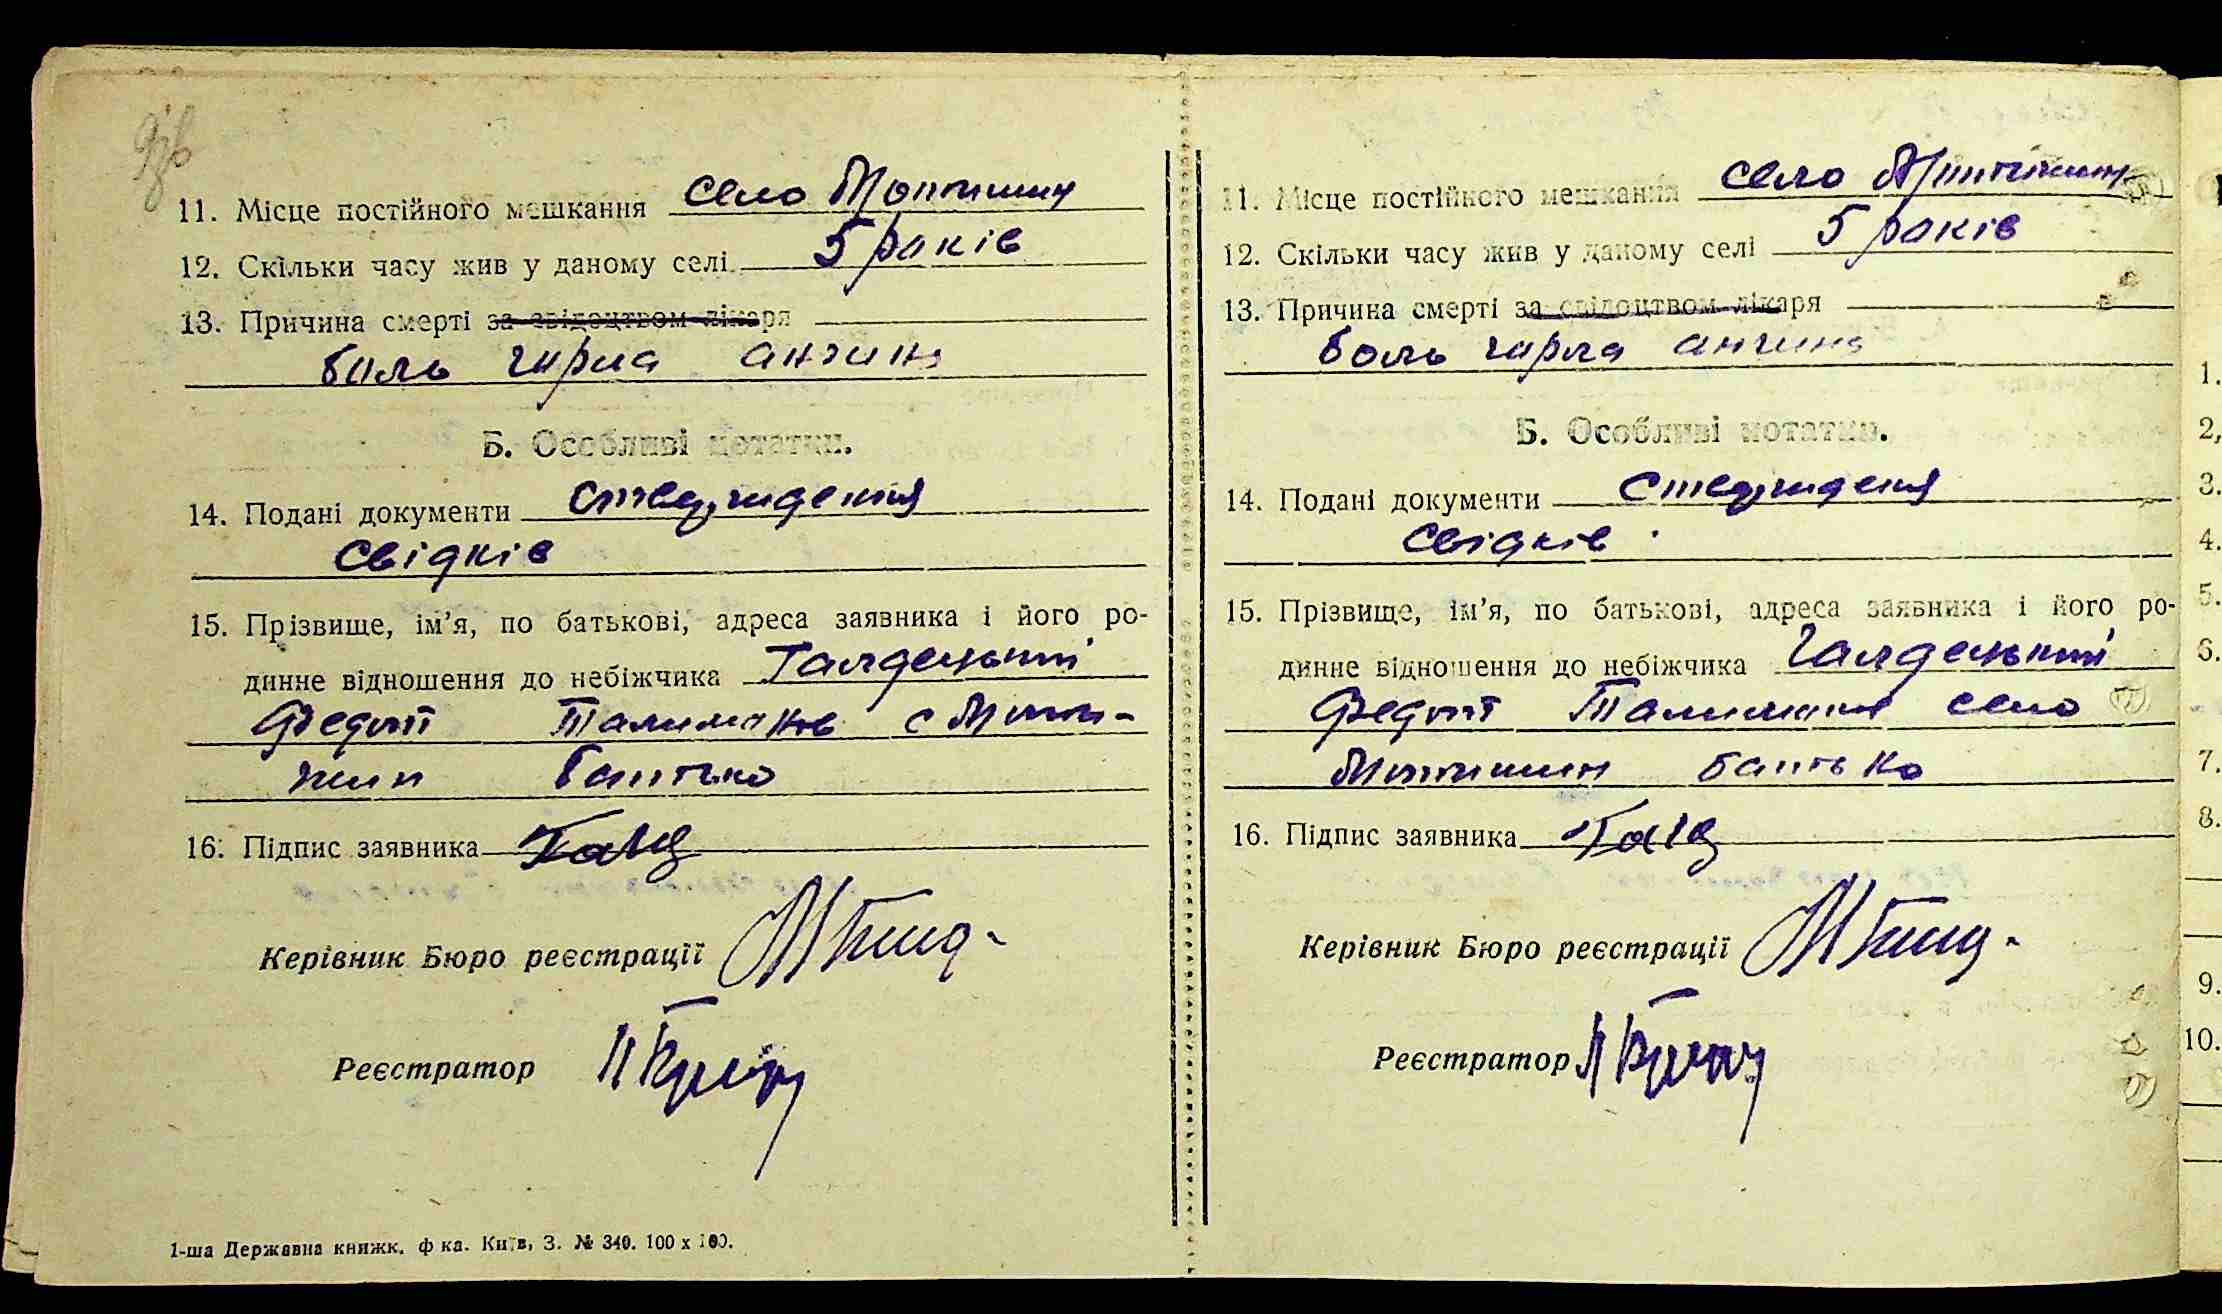 11. Місце постійного мешкання село Мотижин
12. Скільки часу жив у даному селі 5 років
13. Причина смерті за свідоцтвом лікаря
боль горла ангина
Б. Особливі нотатки.
14. Подані документи ствердження
свідків
15. Прізвище, ім’я, по батькові, адреса заявника і його ро-
динне відношення до небіжчика
Федот с Моти-
жин батько
16. Підпис заявника
Керівник Бюро реєстрації
Реєстратор
1-ша Державна книжк. ф ка. Київ, З. № 340. 100 х 100.
11. Місце постійного мешкання село Мотижин
12. Скільки часу жив у даному селі 5 років
13. Причина смерті за свідоцтвом лікаря
боль горла ангина
Б. Особливі нотатки.
14. Подані документи ствердження
свідків
15. Прізвище, ім’я, по батькові, адреса заявника і його ро-
динне відношення до небіжчика
Федот село
Мотижин батько
16. Підпис заявника
Керівник Бюро реєстрації
Реєстратор
1.
2,
3.
4.
5.
6.
7.
8.
9.
10.